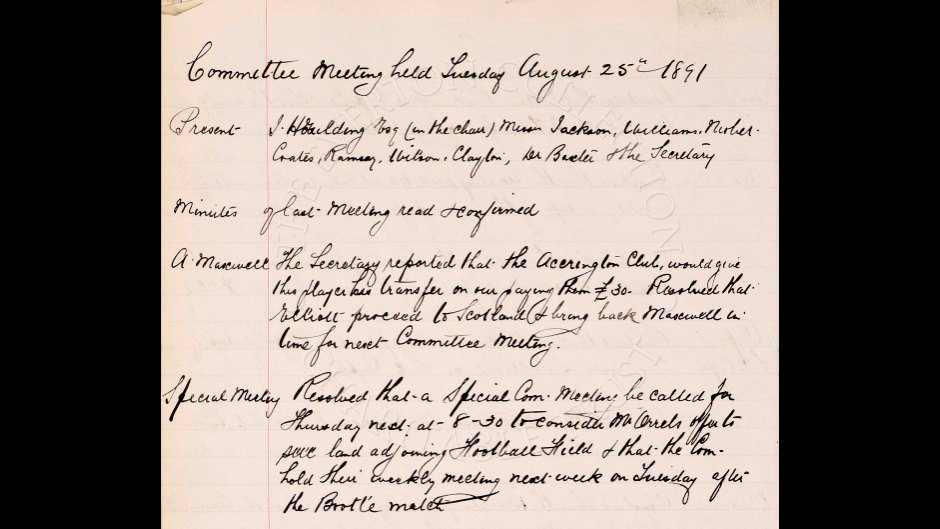 Committee Meeting held Tuesday August 25th 1891
Present J. Houlding Esq (in the chair) Messrs Jackson, Williams,
Coates, Ramsay, Wilson, Clayton, Dr Baxter & the Secretary
Minutes of last Meeting read & confirmed
A. Maxwell The Secretary reported that the Accrington Club, would give
this player his transfer on our paying them £30. Resolved that
Elliott proceed to Scotland & bring back Maxwell in
time for next Committee Meeting.
Special Meeting Resolved that a Special Com. Meeting be called for
Thursday next at 8-30 to consider Mr Orrels offer to
land adjoining Football Field & that the Com.
hold their weekly meeting next week on Tuesday after
the Bootle match